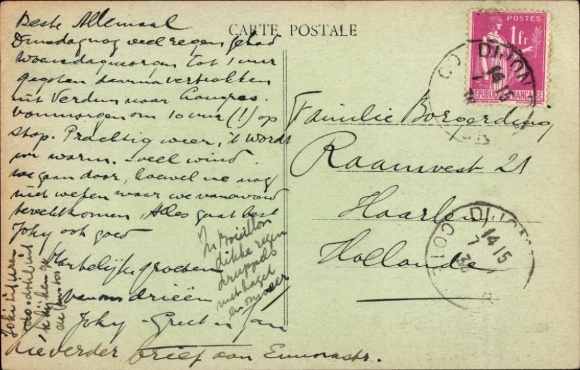 CARTE POSTALE
Beste Allemaal
Dinsdag nog veel regen gehad
Woensdagmorgen tot 1 uur
gegoten daarna vertrokken
uit Verdun naar
vanmorgen om 10 uur (!) op
stap. Prachtig weer, 't wordt
warm. veel wind.
we gaan door, hoewel we nog
niet weten waar we vanavond
terechtkomen. Alles gaat best
Joky ook goed
Hartelijke groeten
van ons drieën
Joky - Greet en Jan
Zie verder brief aan
In
dikke regen
druppels
met hagel
en onweer
POSTES
1 fr
REPUBLIQUE FRANÇAISE
DIJON
14 15
Familie Borgerding
Raamvest 21
Haarlem
Hollande
DIJON
14 15
7